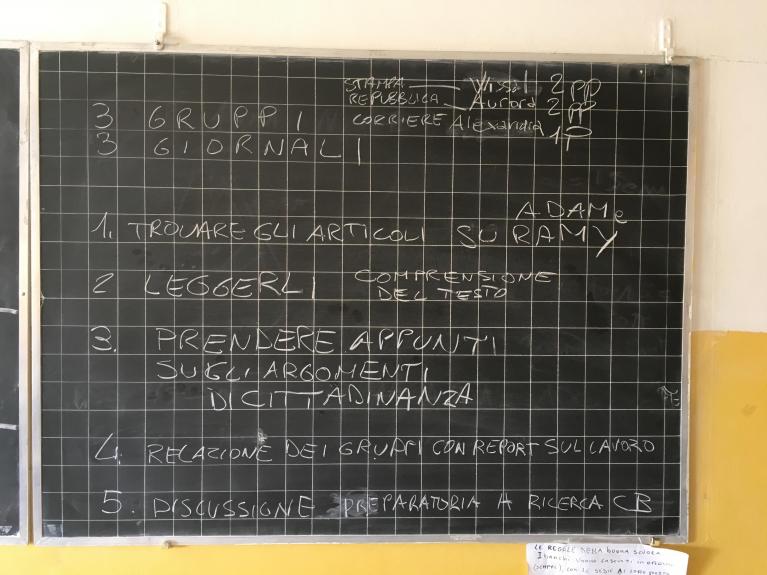 STAMPA — Wissal 2 PP
REPUBBLICA — Aurora 2 PP
CORRIERE Alexandra 1 P
3 GRUPPI
3 GIORNALI
ADAM e
1. TROVARE GLI ARTICOLI SU RAMY
2 LEGGERLI COMPRENSIONE
DEL TESTO
3. PRENDERE APPUNTI
SUGLI ARGOMENTI
DI CITTADINANZA
4. RELAZIONE DEI GRUPPI CON REPORT SUL LAVORO
5. DISCUSSIONE PREPARATORIA A RICERCA CB
LE REGOLE DELLA BUONA SCUOLA
I banchi vanno lasciati in ordine
(SEMPRE), CON LE SEDIE AL LORO POSTO